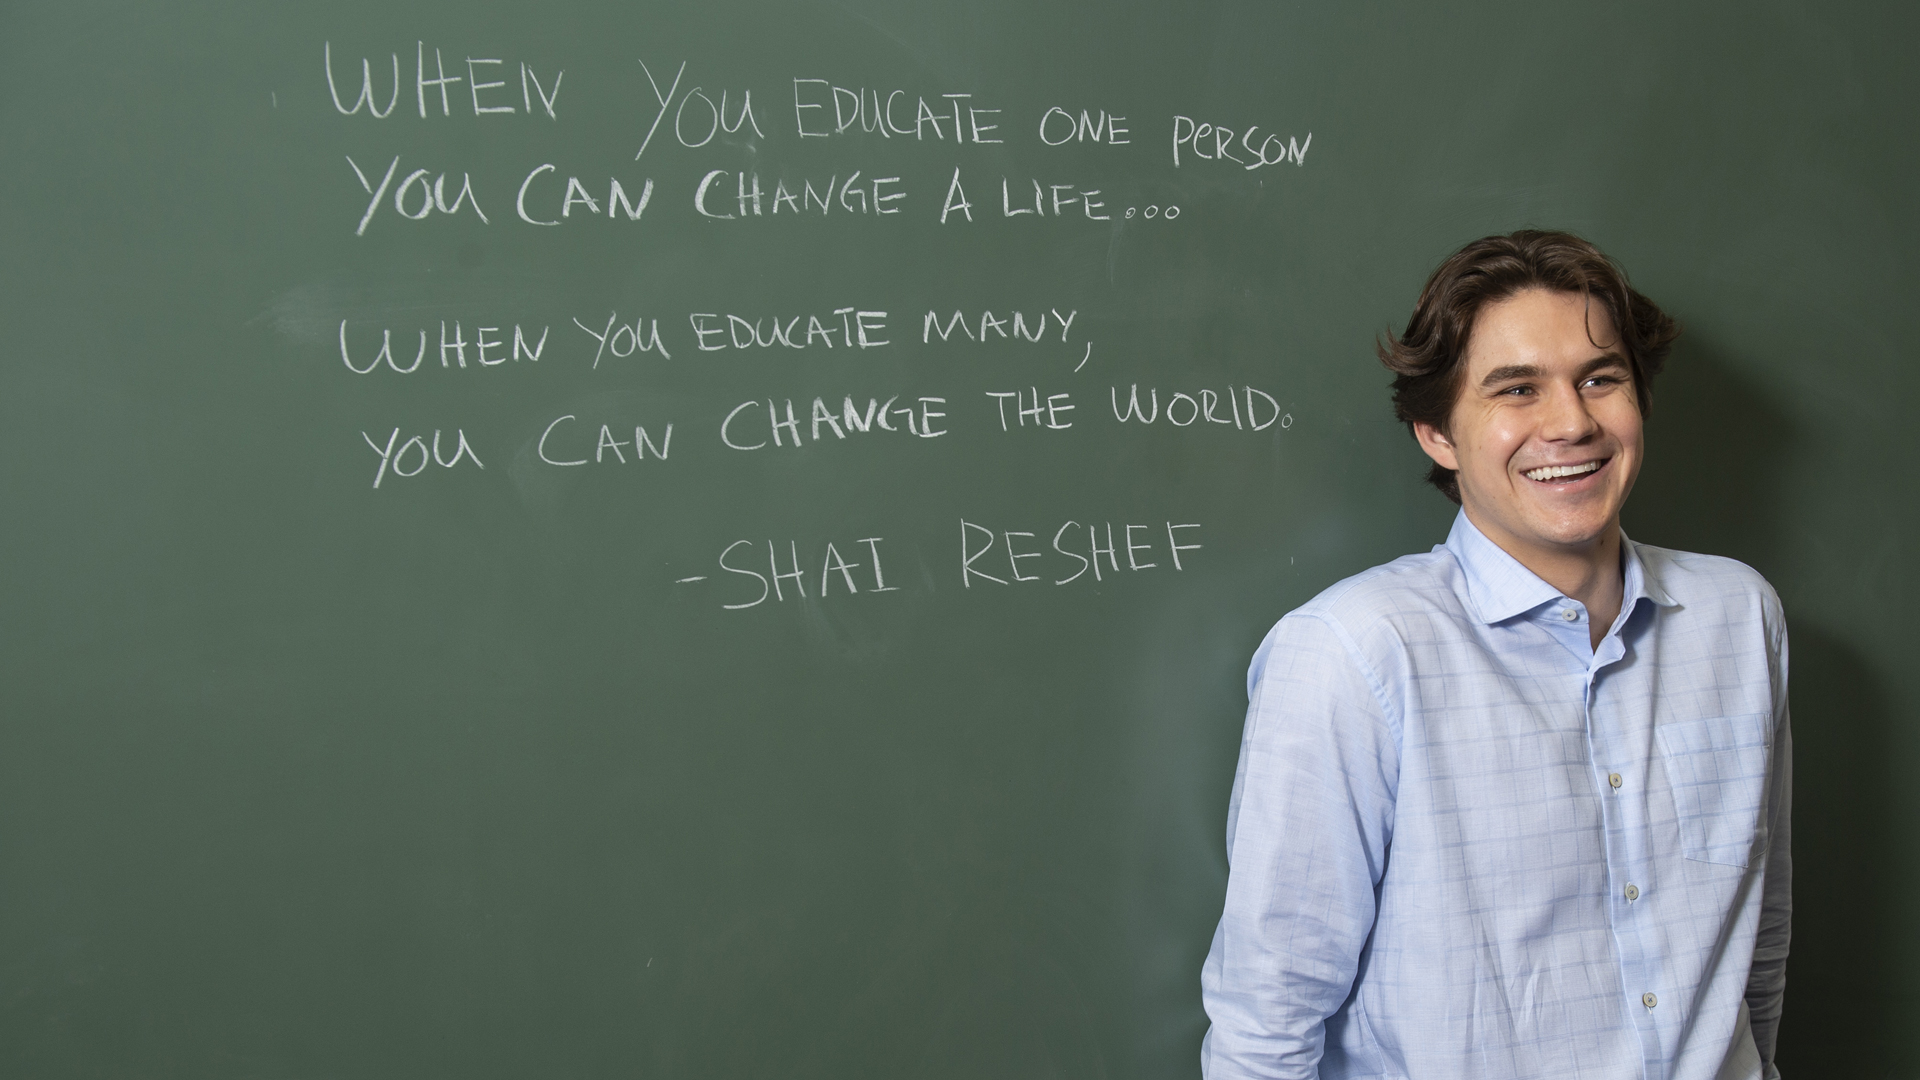 WHEN YOU EDUCATE ONE PERSON
YOU CAN CHANGE A LIFE...
WHEN YOU EDUCATE MANY,
YOU CAN CHANGE THE WORLD.
-SHAI RESHEF